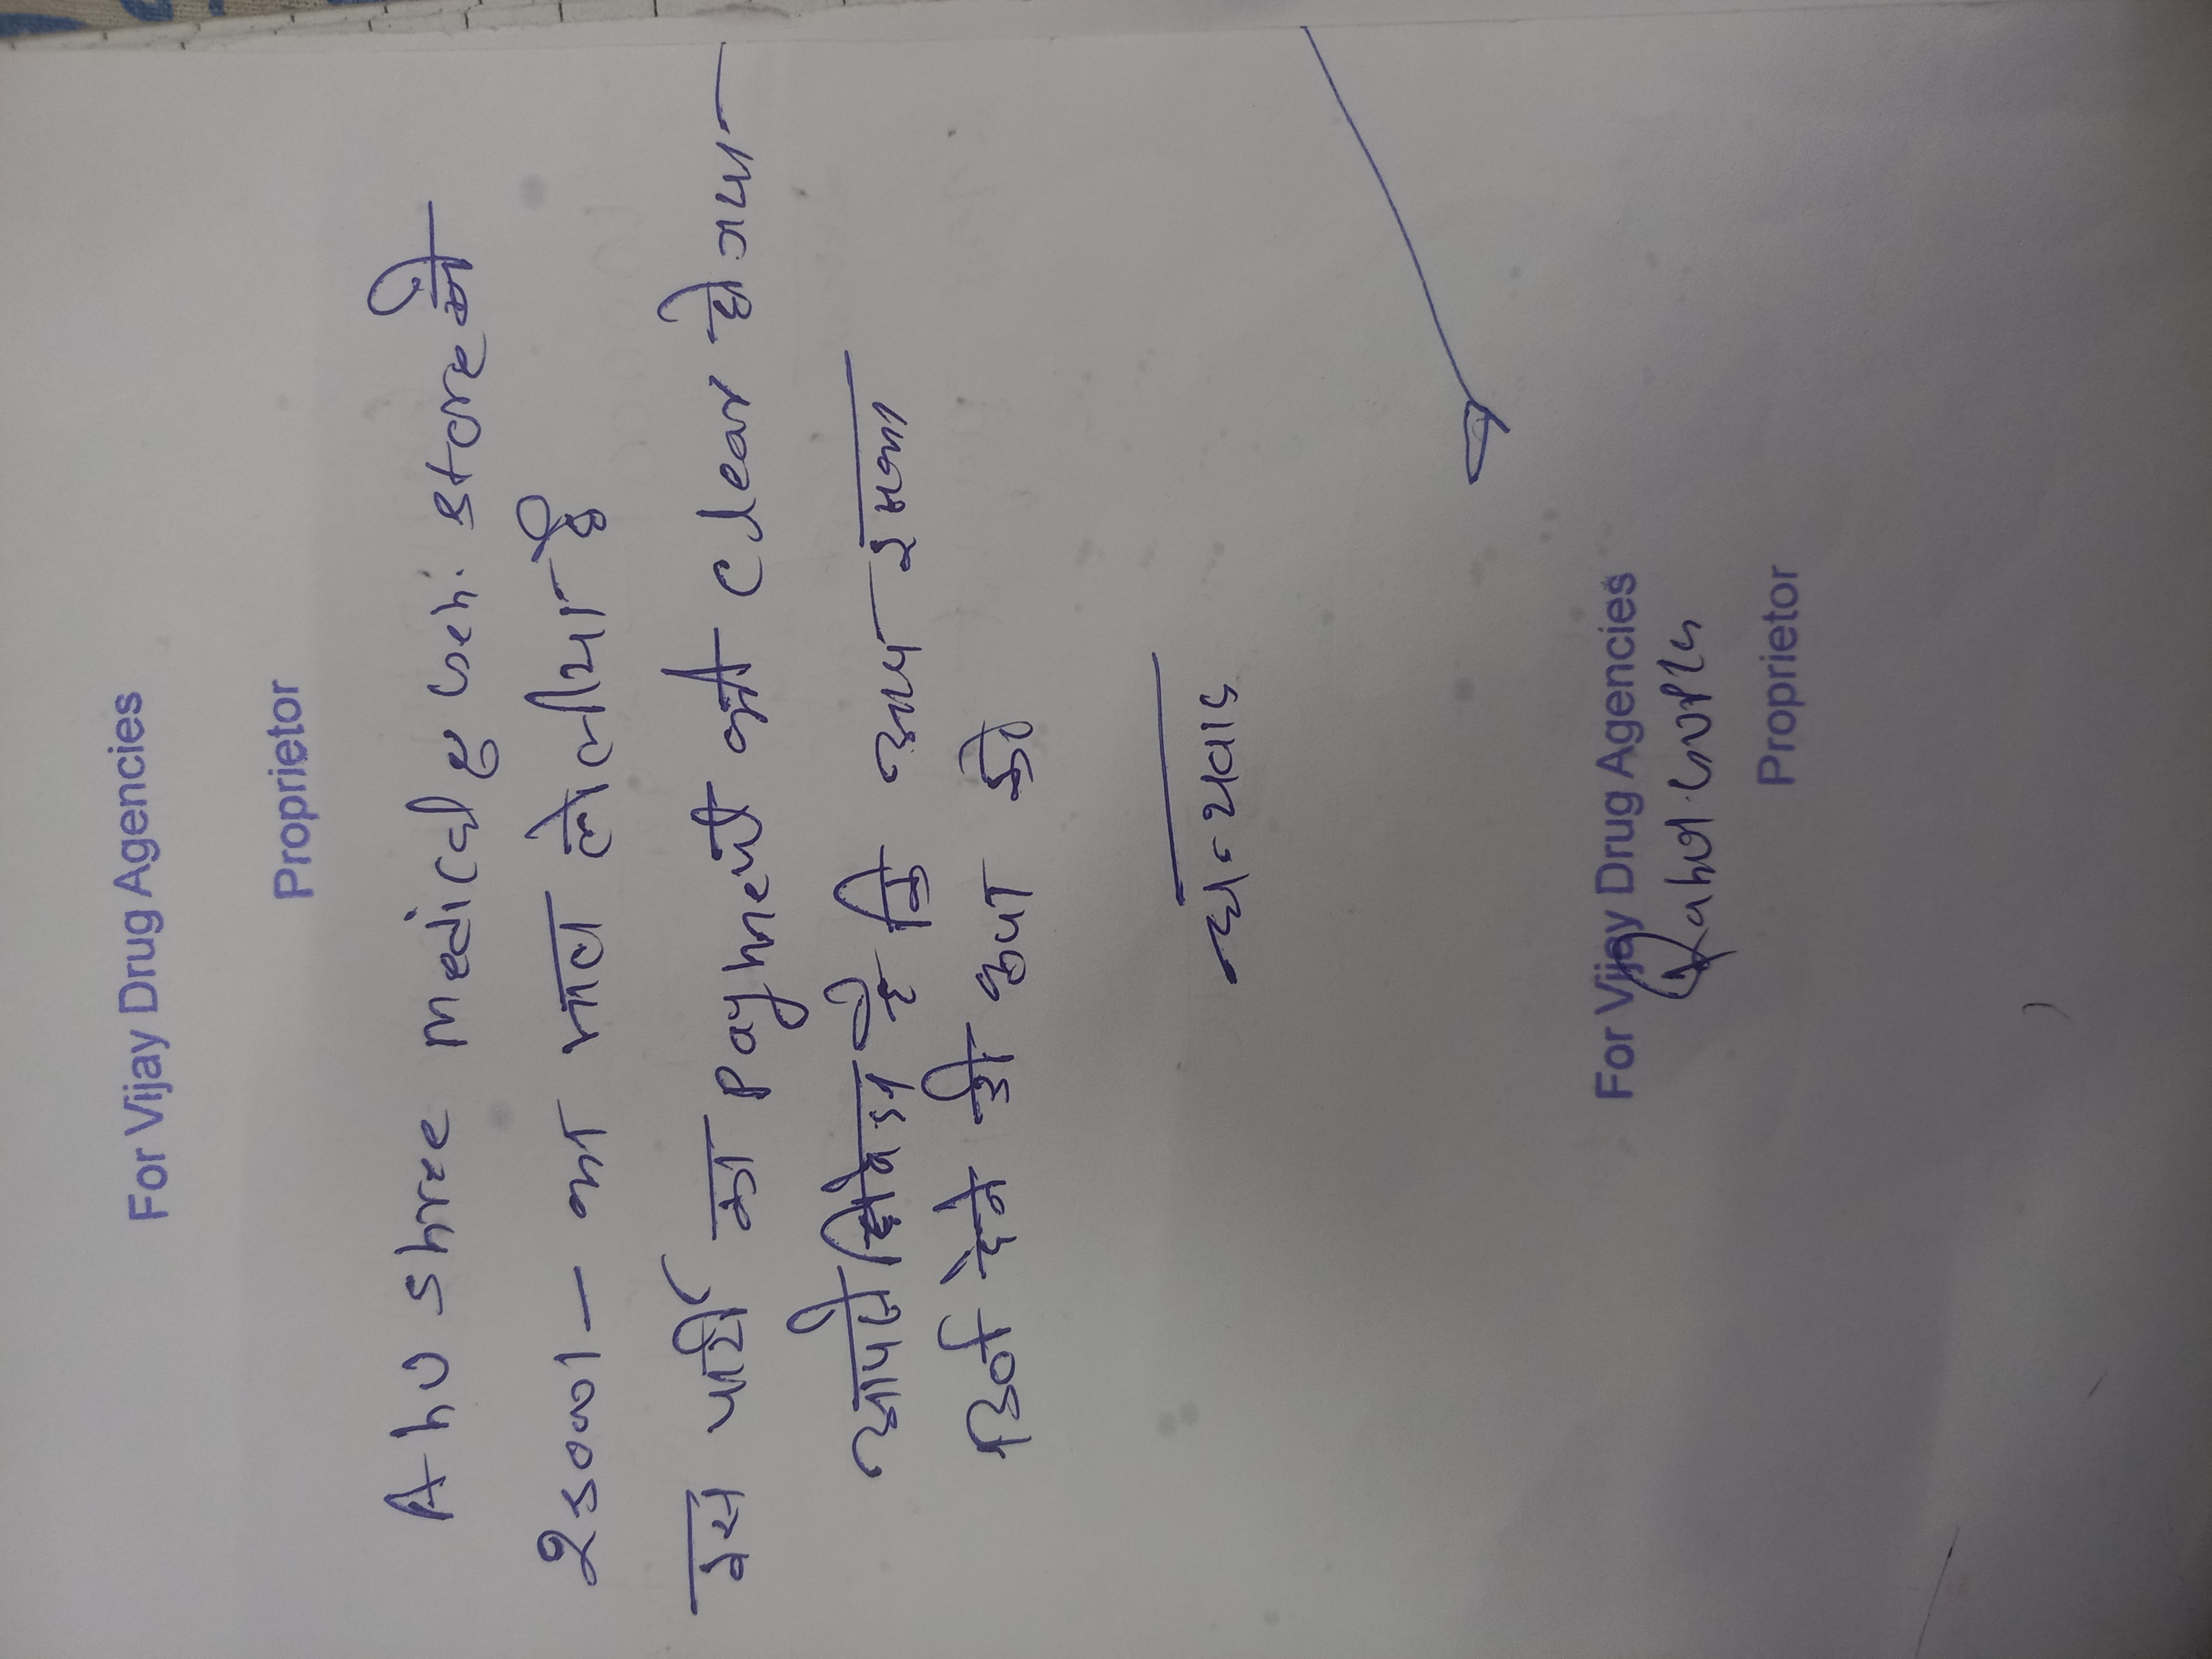 For Vijay Drug Agencies
Proprietor
Ahu shree medical & Gen. store से
25000/- का माल लौटाया है
इस पार्टी का Payment भी clear हो गया
आपसे निवेदन है कि
रिर्फ देने की कृपा करें
धन्यवाद
For Vijay Drug Agencies
Rahul Gupta
Proprietor